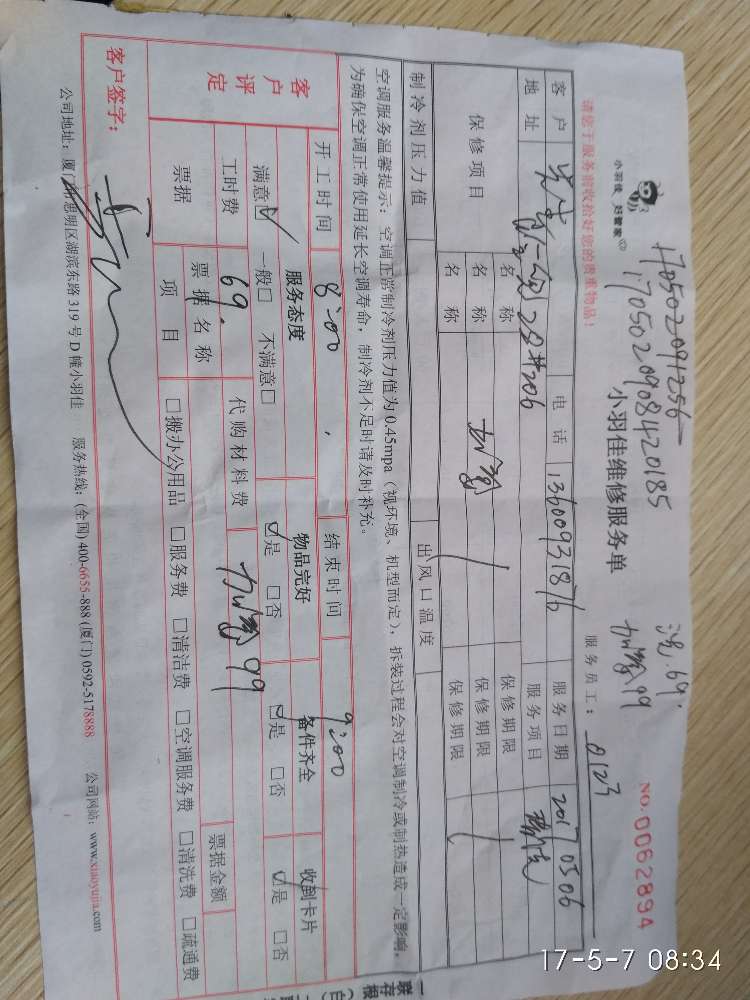 170502091256
1705020908420185
洗.69.
加氟99
小羽佳 好管家
小羽佳维修服务单
NO.0062894
请您于服务前收拾好您的贵重物品！
服务员工：0123
客户
电话 13600931876
服务日期 20170506
地址 28#206
服务项目
保修项目
名称
保修期限
名称
保修期限
名称 加氟
保修期限
制冷剂压力值
出风口温度
空调服务温馨提示：空调正常制冷剂压力值为0.45mpa（视环境、机型而定），拆装过程会对空调制冷或制热造成一定影响，
为确保空调正常使用延长空调寿命，制冷剂不足时请及时补充。
客户评定
开工时间 8:00
结束时间 9:00
服务态度
物品完好
备件齐全
收到卡片
满意☑ 一般□ 不满意□
☑是 □否
☑是 □否
☑是 □否
工时费 69.
代购材料费 加氟99
票据
票据名称
票据金额
项目
□搬办公用品 □服务费 □清洁费 □空调服务费 □清洗费 □疏通费
客户签字：
公司地址：厦门市思明区湖滨东路319号D幢小羽佳 服务热线：(全国)400-6655-888 (厦门)0592-5178888 公司网站：www.xiaoyujia.com
17-5-7 08:34